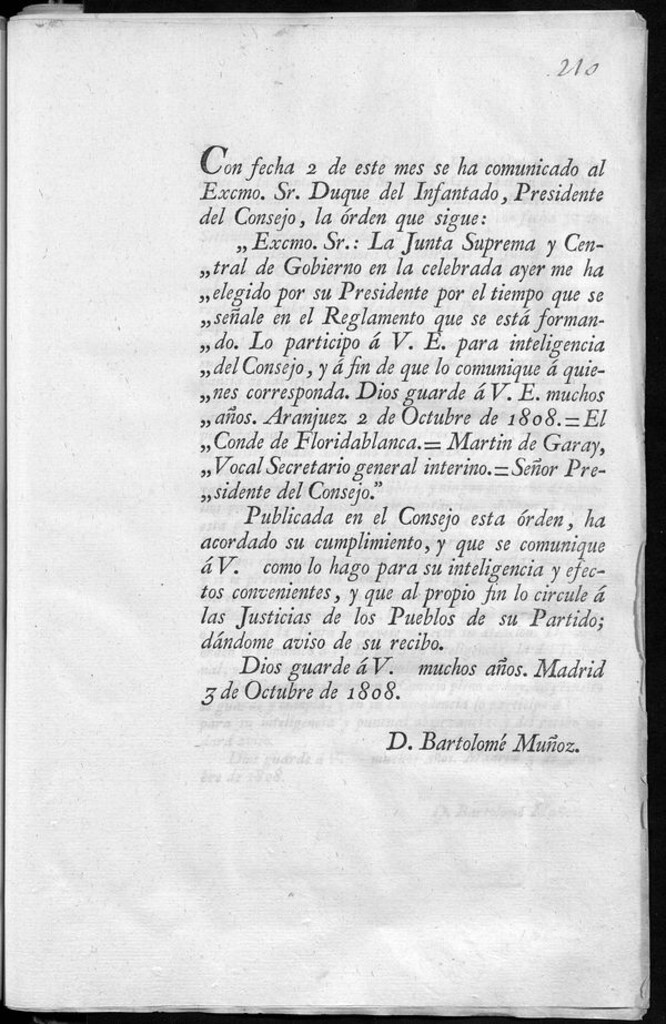 210
Con fecha 2 de este mes se ha comunicado al
Excmo. Sr. Duque del Infantado, Presidente
del Consejo, la órden que sigue:
„Excmo. Sr.: La Junta Suprema y Cen-
„tral de Gobierno en la celebrada ayer me ha
„elegido por su Presidente por el tiempo que se
„señale en el Reglamento que se está forman-
„do. Lo participo á V. E. para inteligencia
„del Consejo, y á fin de que lo comunique á quie-
„nes corresponda. Dios guarde á V. E. muchos
„años. Aranjuez 2 de Octubre de 1808.=El
„Conde de Floridablanca.= Martin de Garay,
„Vocal Secretario general interino.=Señor Pre-
„sidente del Consejo.”
Publicada en el Consejo esta órden, ha
acordado su cumplimiento, y que se comunique
á V. como lo hago para su inteligencia y efec-
tos convenientes, y que al propio fin lo circule á
las Justicias de los Pueblos de su Partido;
dándome aviso de su recibo.
Dios guarde á V. muchos años. Madrid
3 de Octubre de 1808.
D. Bartolomé Muñoz.